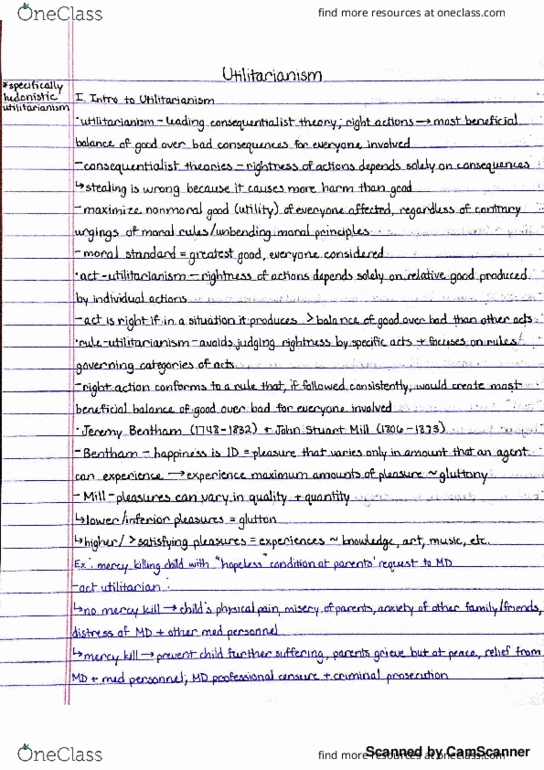 OneClass
find more resources at oneclass.com
Utilitarianism
*specifically
hedonistic
utilitarianism
I. Intro to Utilitarianism
•utilitarianism - leading consequentialist theory; right actions → most beneficial
balance of good over bad consequences for everyone involved
-consequentialist theories - rightness of actions depends solely on consequences
↳stealing is wrong because it causes more harm than good
-maximize nonmoral good (utility) of everyone affected, regardless of contrary
urgings of moral rules/unbending moral principles
-moral standard = greatest good, everyone considered
•act-utilitarianism - rightness of actions depends solely on relative good produced
by individual actions
-act is right if in a situation it produces > balance of good over bad than other acts
•rule-utilitarianism - avoids judging rightness by specific acts + focuses on rules
governing categories of acts
-right action conforms to a rule that, if followed consistently, would create most
beneficial balance of good over bad for everyone involved
• Jeremy Bentham (1748-1832) + John Stuart Mill (1806-1873)
-Bentham - happiness is 1D = pleasure that varies only in amount that an agent
can experience → experience maximum amounts of pleasure ~ gluttony
- Mill - pleasures can vary in quality + quantity
↳lower/inferior pleasures = glutton
↳higher/ > satisfying pleasures = experiences ~ knowledge, art, music, etc.
Ex: mercy killing child with "hopeless" condition at parents' request to MD
-act utilitarian:
↳no mercy kill → child's physical pain, misery of parents, anxiety of other family/friends,
distress of MD + other med personnel
↳mercy kill → prevent child further suffering, parents grieve but at peace, relief from
MD + med personnel; MD professional censure + criminal prosecution
OneClass
find more resources at oneclass.com
Scanned by CamScanner